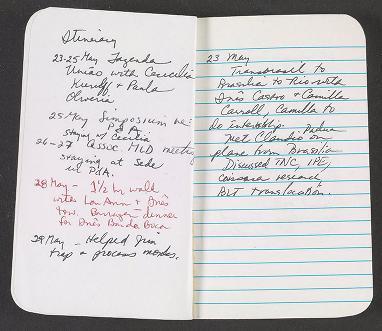 Itinerary
23-25 May Fazenda
União with Cecilia
Kierulff + Paula
Oliveria
25 May Symposium re:
PDA
staying w/ Cecilia
26-27 assoc MLD meeting
staying at Sede
in PDA.
28 May - 1½ hr walk
with Lou Ann + Inês
tow. dinner
for Inês Boca
29 May - Helped Jim
trap + process monkes.
23 May
Transbrasil to
Brasilia to Rio with
Inês Castro + Camilla
Carroll, Camilla to
do internship.
Met Claudio Padua on
plane from Brasilia
Discussed TNC, IPE,
research
BLT translocation.